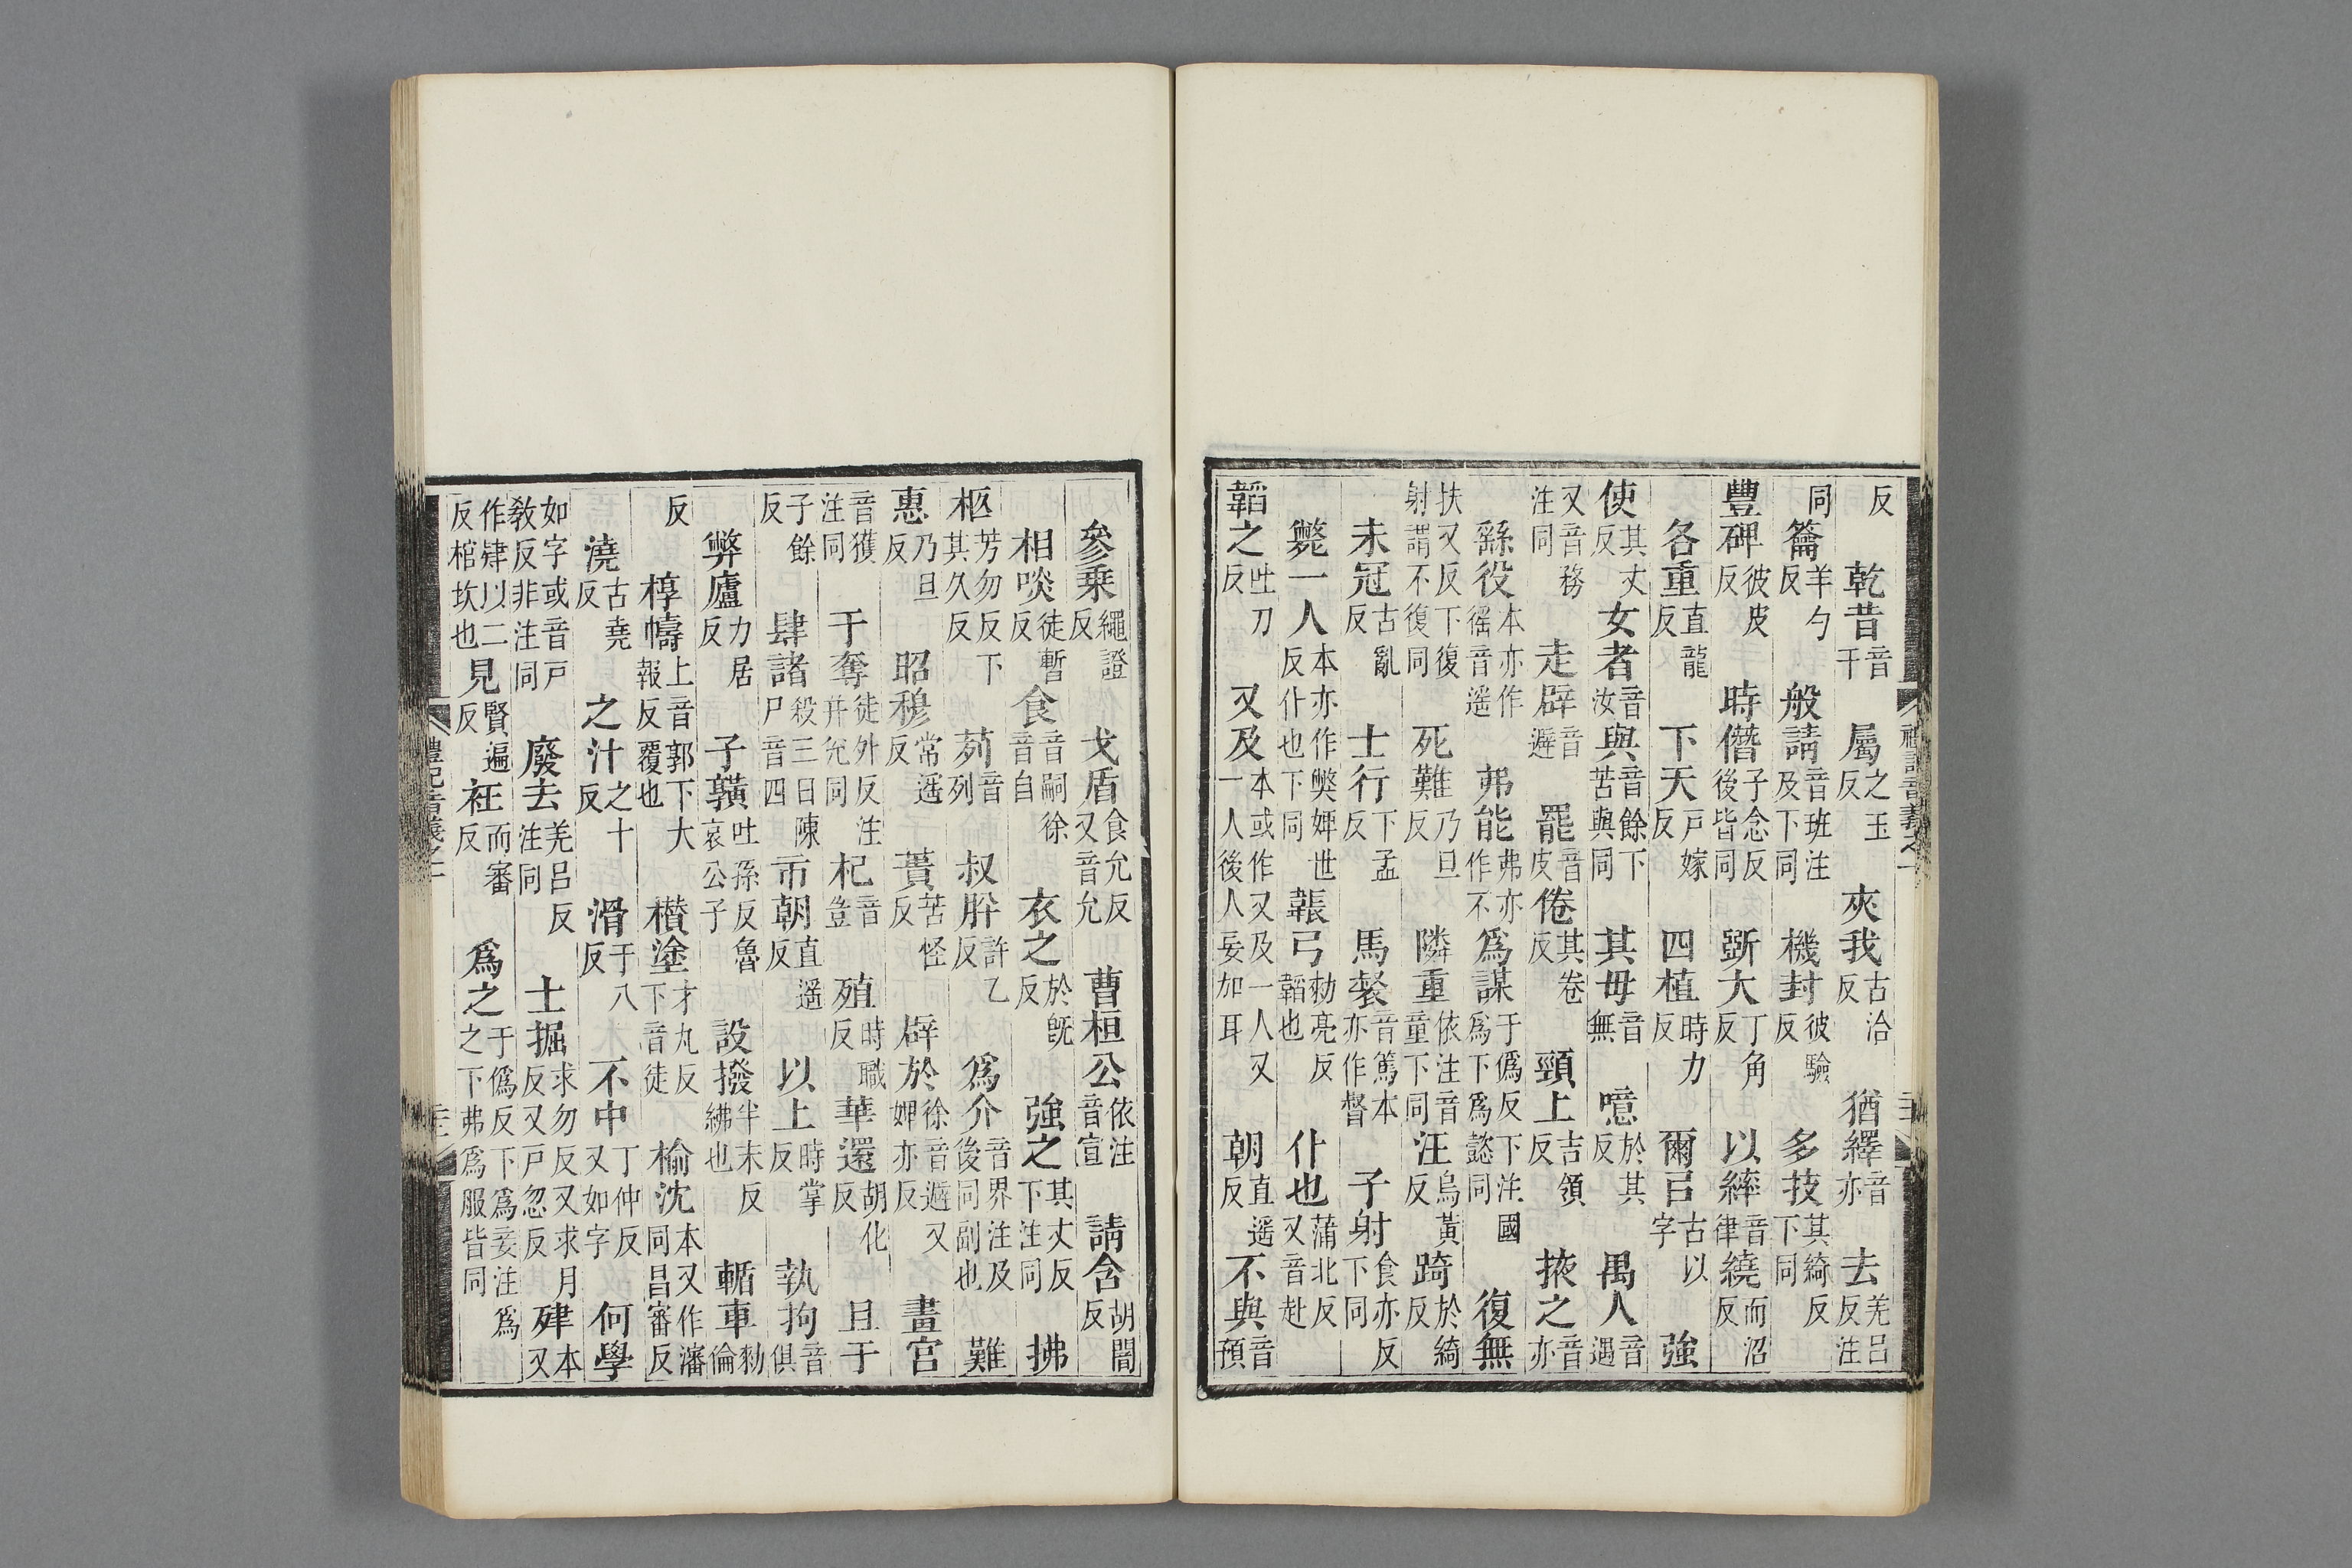 反 乾昔音干 屬之玉反 夾我古洽反 猶繹音亦 去羌呂反注
同 籥羊勺反 般請音班注及下同 機封彼驗反 多技其綺反下同
豐碑彼皮反 時僭子念反後皆同 斵大丁角反 以繂音律 繞而沼反
各重直龍反 下天戸嫁反 四植時力反 爾㠯古以字 強
使其丈反 女者音汝 與音餘下苦與同 其毋音無 噫於其反 禺人音遇
又音務注同 走辟音避 罷音皮 倦其卷反 頸上吉領反 掖之音亦
繇役本亦作徭音遥 弗能弗亦作不 爲謀于僞反下注國爲下爲懿同 復無
扶又反下復射謂不復同 死難乃旦反 隣重依注音童下同 汪烏黃反 踦於綺反
未冠古亂反 士行下孟反 馬䊵音篤本亦作督 子射食亦反下同
斃一人本亦作獘婢世反什也下同 韔弓勑亮反韜也 什也蒲北反又音赴
韜之吐刀反 又及本或作又及一人又一人後人妄加耳 朝直遥反 不與音預
參乗繩證反 戈盾食允反又音允 曹桓公依注音宣 請含胡闇反
相啖徒暫反 食音嗣徐音自 衣之於旣反 強之其丈反下注同 拂
柩芳勿反下其久反 茢音列 叔肸許乙反 爲介音界注及後同副也 難
惠乃旦反 昭穆常遥反 蕢苦怪反 辟於徐音避又婢亦反 畫宮
音獲注同 于奪徒外反注并兊同 杞音豈 殖時職反 華還胡化反 且于
子餘反 肆諸殺三日陳尸音四 市朝直遥反 以上時掌反 執拘音俱
弊廬力居反 子䵍吐孫反魯哀公子 設撥半末反紼也 輴車勑倫
反 椁幬上音郭下大報反覆也 欑塗才丸反下音徒 榆沈本又作瀋同昌審反
澆古堯反 之汁之十反 滑于八反 不中丁仲反又如字 何學
如字或音戸敎反非注同 廢去羌呂反注同 士掘求勿反又求月反又戸忽反 肂本又
作肄以二反棺坎也 見賢遍反 衽而審反 爲之于僞反下爲妾注爲之下弗爲服皆同